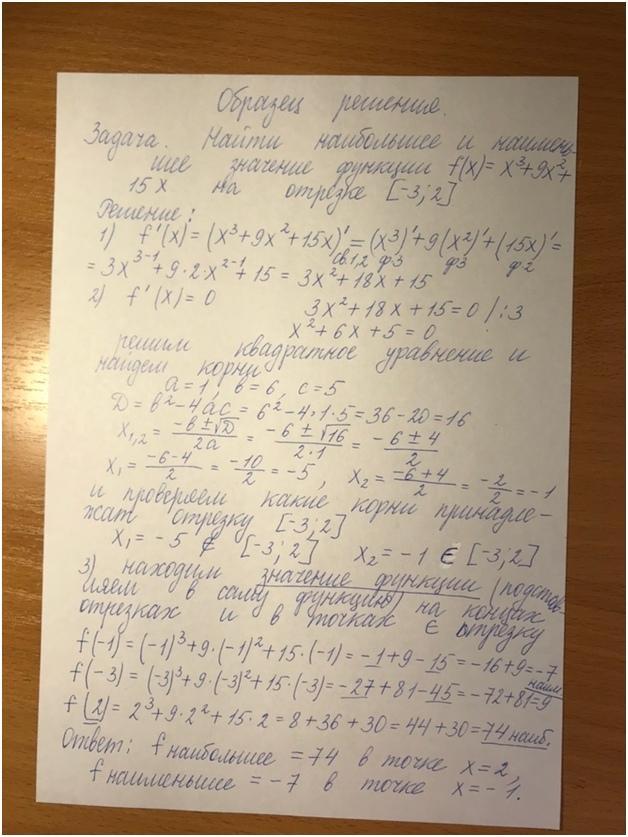 Образец решения.
Задача. Найти наибольшее и наимень-
шее значение функции f(x)= x³+9x²+
15x на отрезке [-3; 2]
Решение:
1) f'(x) = (x³+9x²+15x)' = (x³)'+9(x²)'+(15x)' =
св.1,2 ф3 ф3 ф2
= 3x³⁻¹+9·2·x²⁻¹+15 = 3x²+18x+15
2) f'(x) = 0 3x²+18x+15=0 /:3
x²+6x+5=0
решим квадратное уравнение и
найдем корни
a=1, b=6, c=5
D = b²-4ac = 6²-4·1·5=36-20=16
x₁,₂ = (-b±√D)/2a = (-6±√16)/2·1 = (-6±4)/2
x₁ = (-6-4)/2 = -10/2 = -5, x₂ = (-6+4)/2 = -2/2 = -1
и проверяем какие корни принадле-
жат отрезку [-3; 2]
x₁ = -5 ∉ [-3; 2] x₂ = -1 ∈ [-3; 2]
3) находим значение функции (подстав-
ляем в саму функцию) на концах
отрезках и в точках ∈ отрезку
f(-1) = (-1)³+9·(-1)²+15·(-1) = -1+9-15 = -16+9 = -7
наим.
f(-3) = (-3)³+9·(-3)²+15·(-3) = -27+81-45 = -72+81=9
f(2) = 2³+9·2²+15·2 = 8+36+30 = 44+30 = 74 наиб.
Ответ: f наибольшее = 74 в точке x=2,
f наименьшее = -7 в точке x=-1.